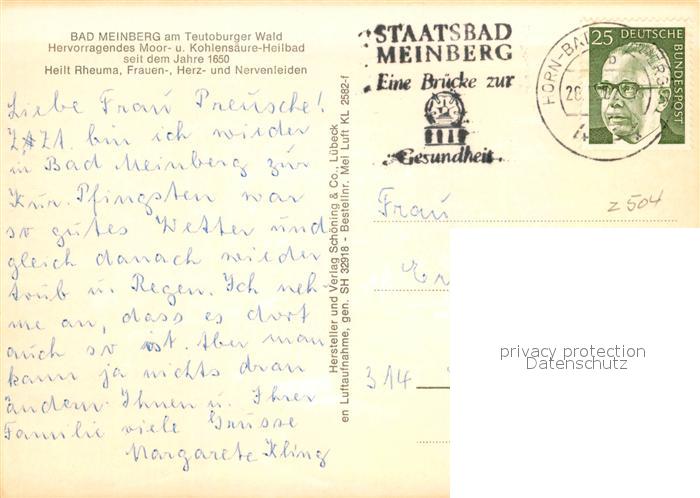 BAD MEINBERG am Teutoburger Wald
Hervorragendes Moor- u. Kohlensäure-Heilbad
seit dem Jahre 1650
Heilt Rheuma, Frauen-, Herz- und Nervenleiden
Liebe Frau Preusche!
Z. Zt bin ich wieder
in Bad Meinberg zur
Kur. Pfingsten war
so gutes Wetter und
gleich danach wieder
trüb u. Regen. Ich neh-
me an, dass es dort
auch so ist. Aber man
kann ja nichts dran
ändern. Ihnen u. Ihrer
Familie viele Grüsse
Margarete Kling
Hersteller und Verlag Schöning & Co., Lübeck
en Luftaufnahme, gen. SH 32918 - Bestellnr. Mei Luft KL 2582-f
STAATSBAD
MEINBERG
Eine Brücke zur
Gesundheit
HORN-BAD
25 DEUTSCHE
BUNDESPOST
z 504
Frau
314
privacy protection
Datenschutz